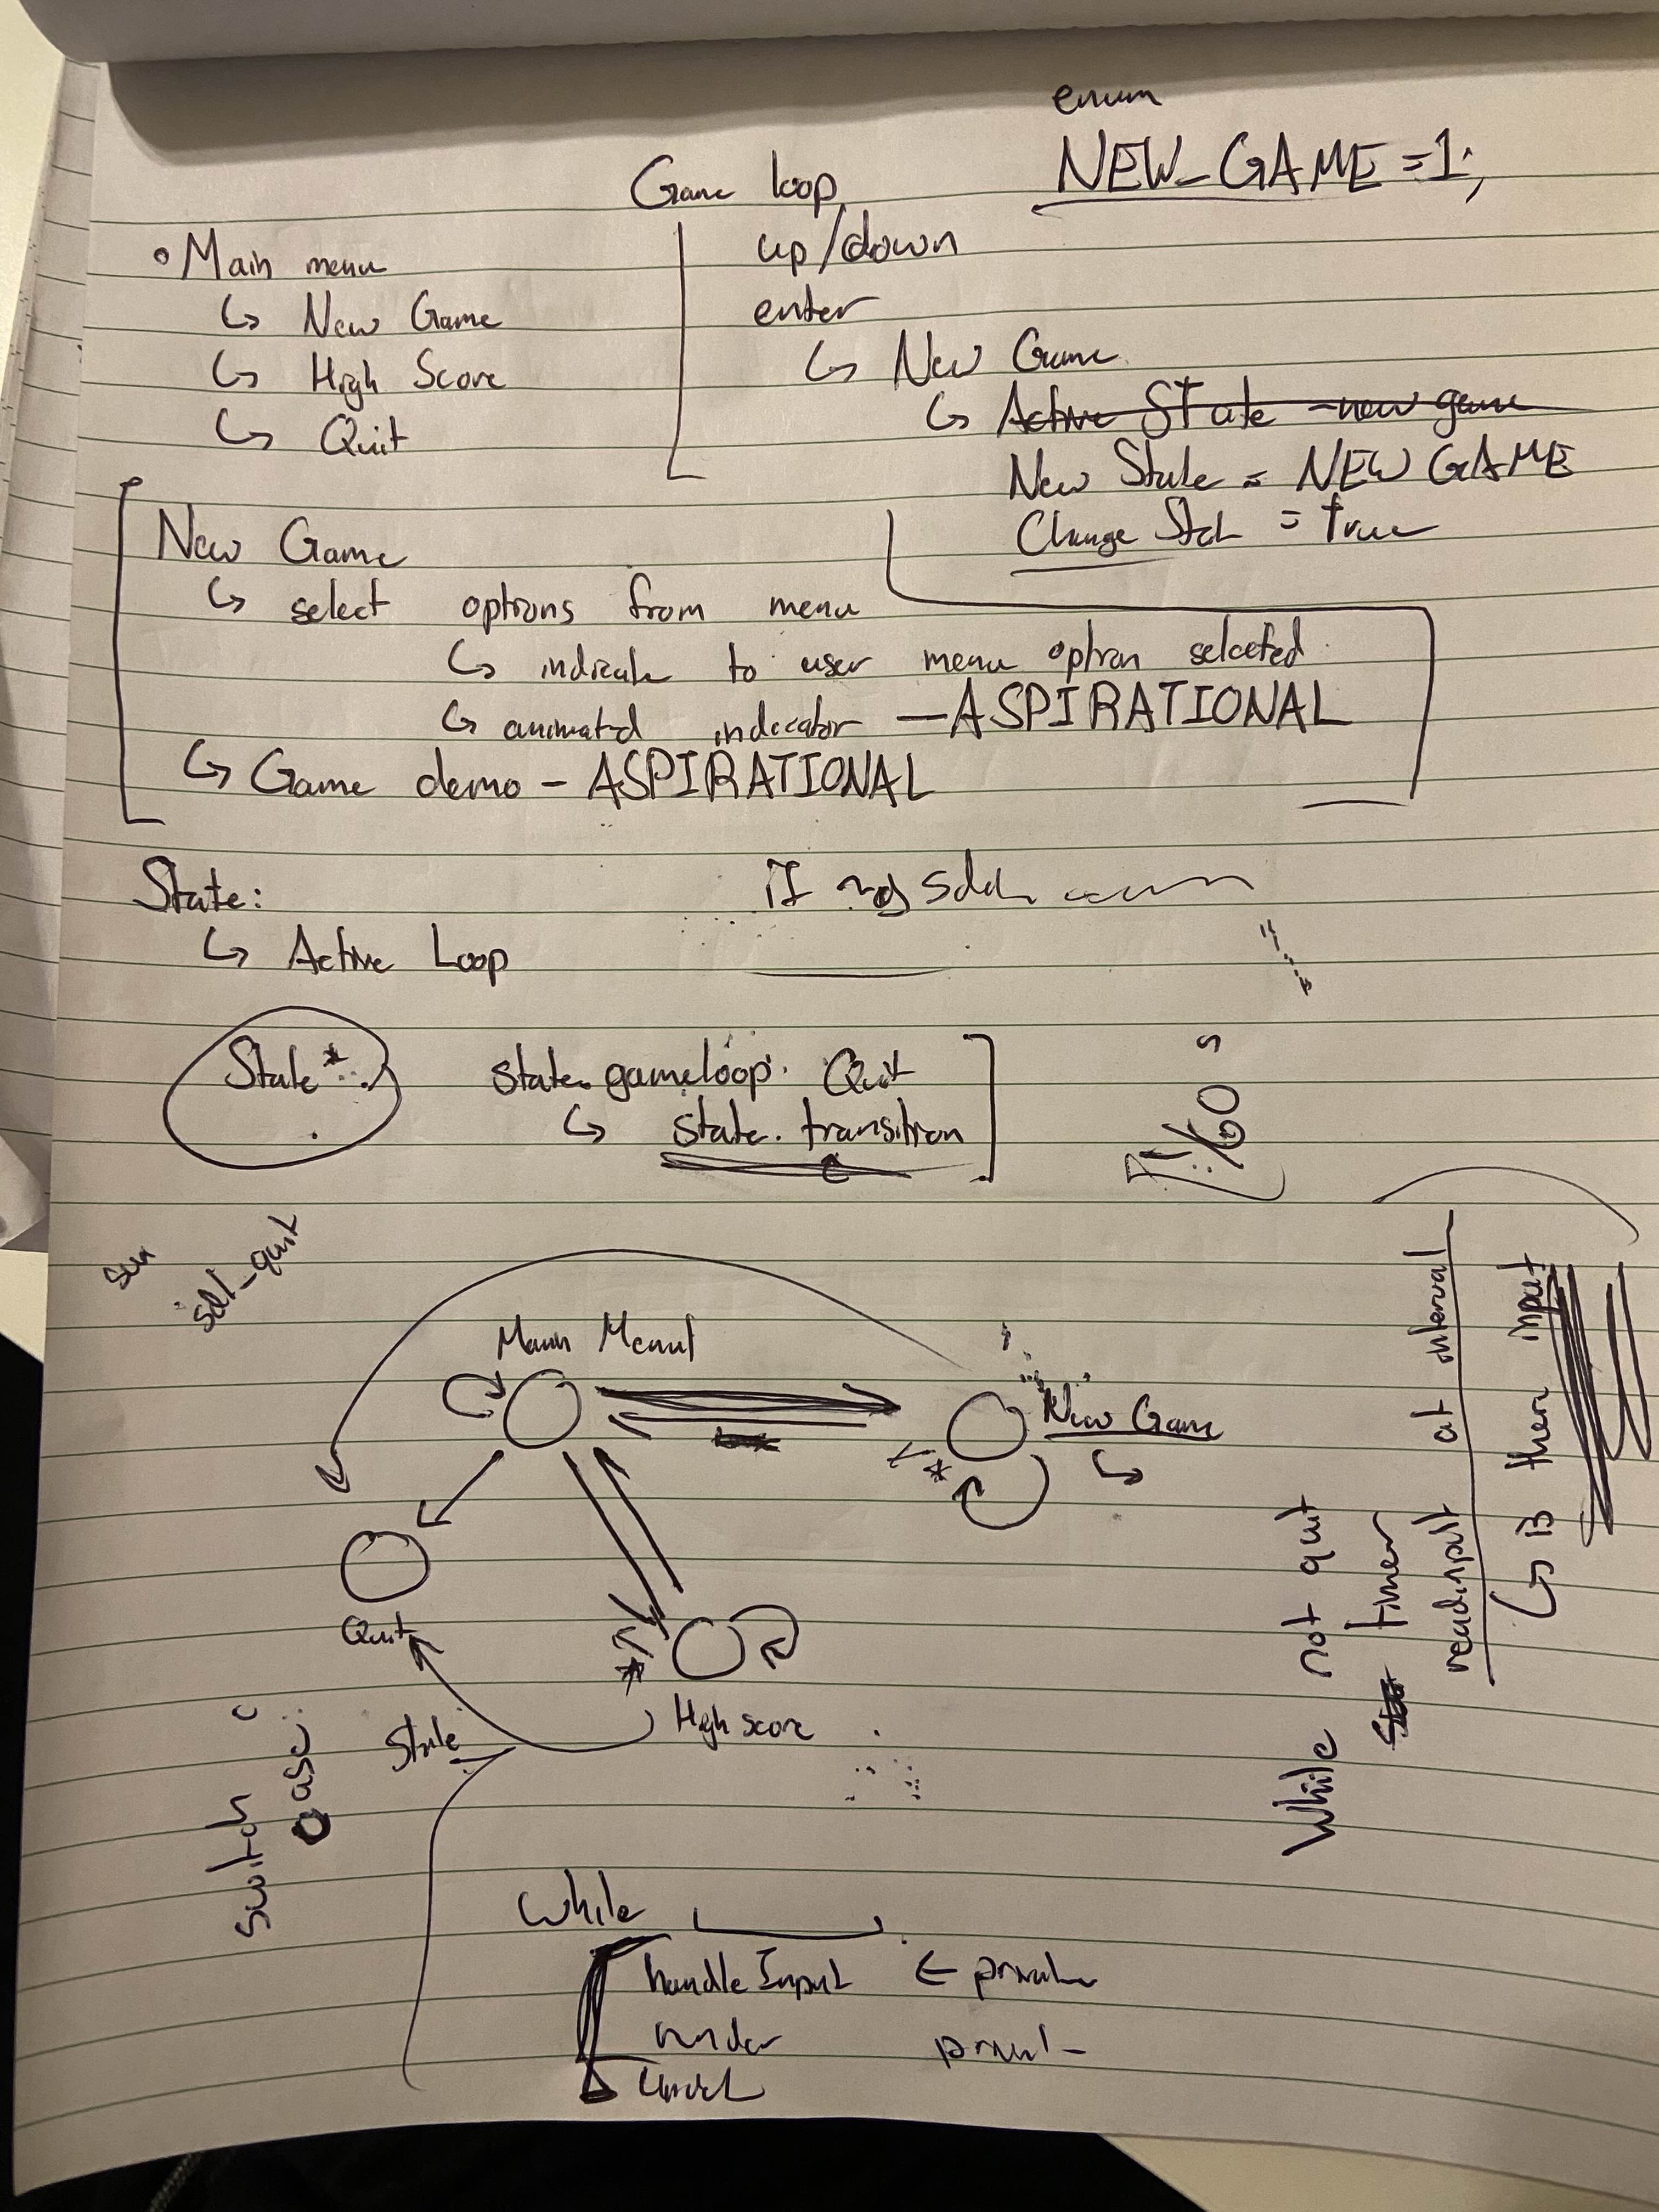 enum
NEW_GAME = 1;
Game loop
• Main menu
↳ New Game
↳ High Score
↳ Quit
up/down
enter
↳ New Game
↳ Active State - new game
New State = NEW GAME
Change State = true
New Game
↳ select options from menu
↳ indicate to user menu option selected
↳ animated indicator — ASPIRATIONAL
↳ Game demo - ASPIRATIONAL
State:
↳ Active Loop
State*
state.gameloop. Quit
↳ state.transition
1/60 s
sdl_quit
Main Menu
New Game
Quit
High score
State
switch
case:
While not quit
timer
readinput at interval
↳ is there input
While
handleInput ← private
render private